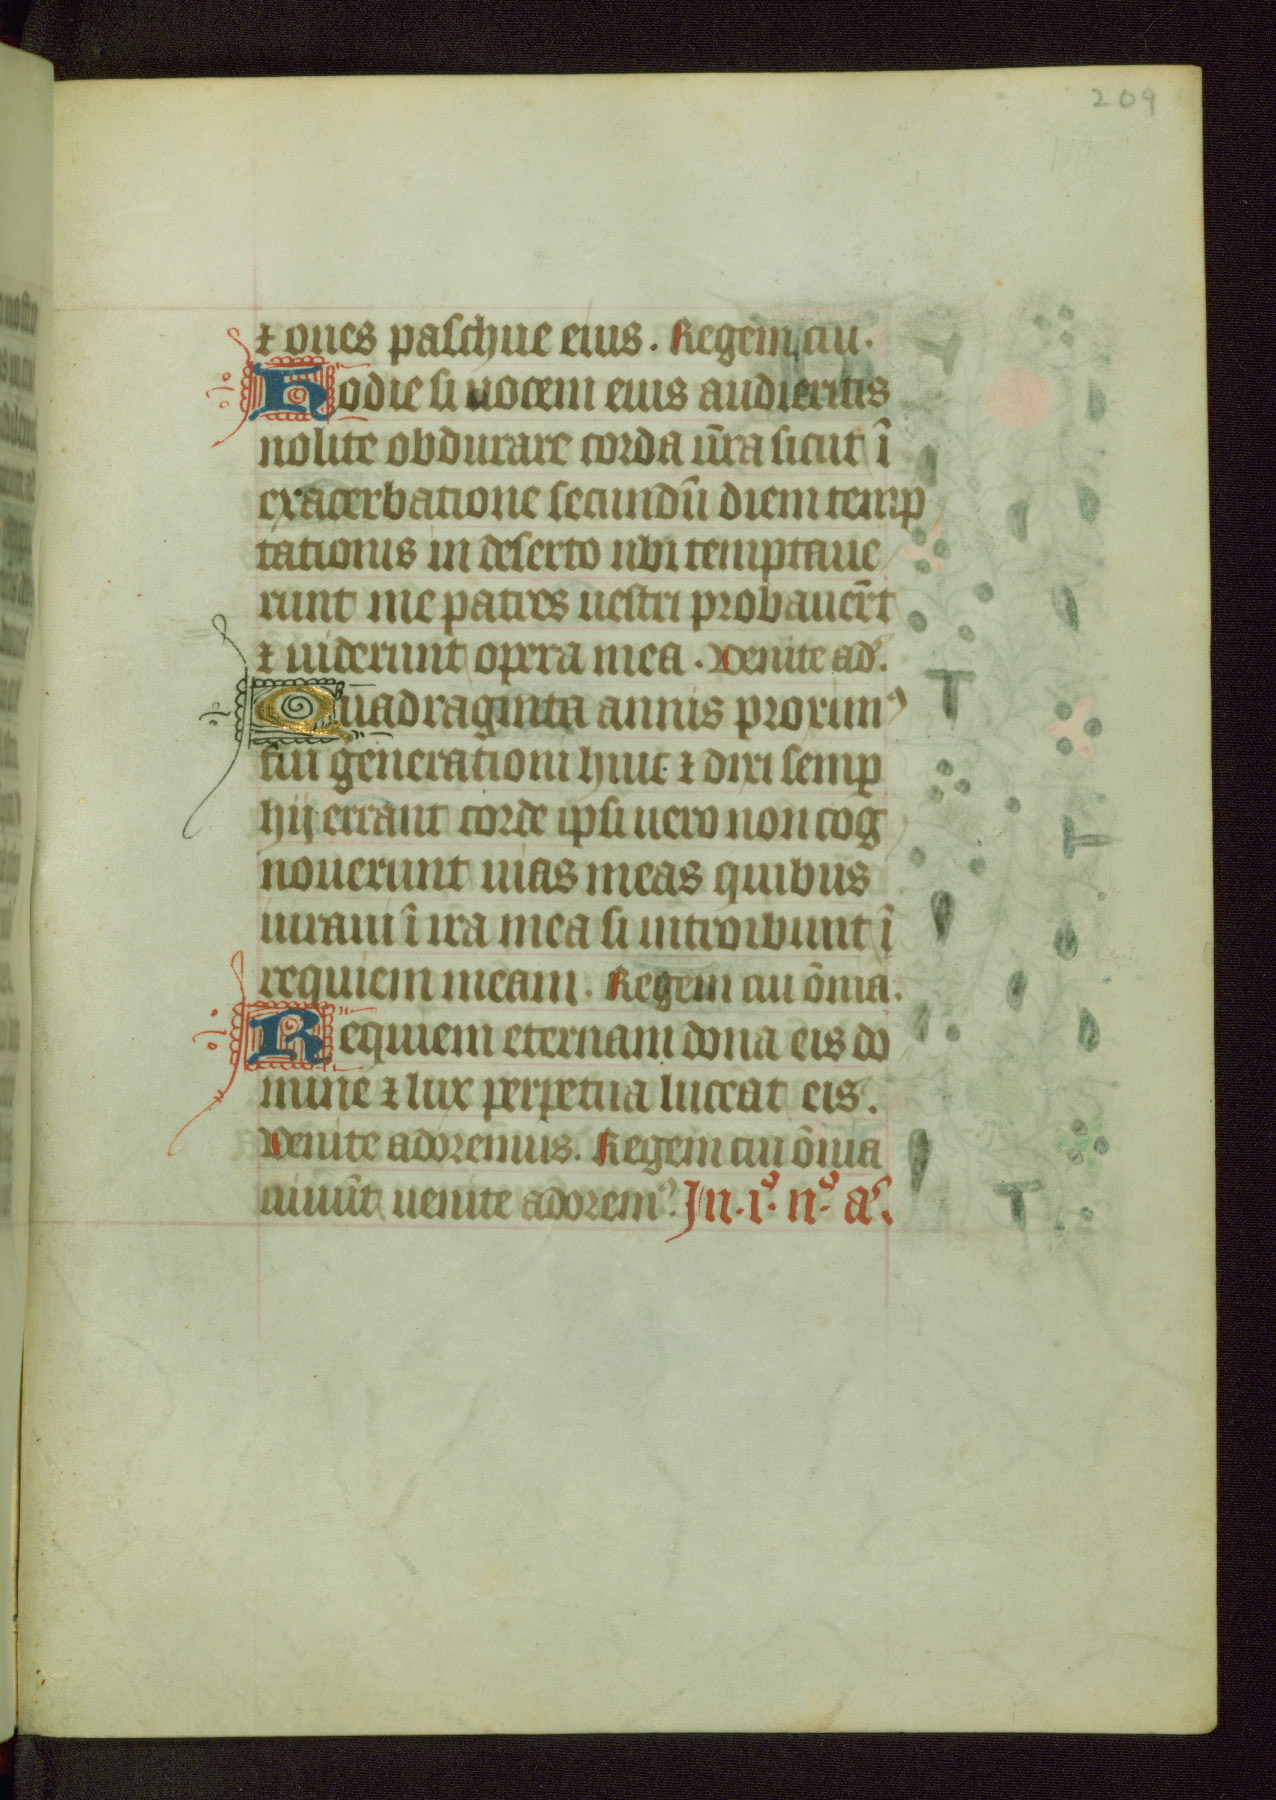 209
⁊ oues paschue eius. Regem cui.
Hodie si uocem eius audieritis
nolite obdurare corda ur̄a sicut ī
exacerbatione secundū diem temp
tationis in deserto ubi temptaue
runt me patres uestri probauer̄t
⁊ uiderunt opera mea. Venite ad.
Quadraginta annis proximꝰ
fui generationi huic ⁊ dixi semꝑ
hij errant corde ipsi uero non cog
nouerunt uias meas quibus
iuraui ī ira mea si introibunt ī
requiem meam. Regem cui ōnia.
Requiem eternam dona eis do
mine ⁊ lux perpetua luceat eis.
Venite adoremus. Regem cui ōnia
uiuūt uenite adoremꝰ. In. i°. n°. a͛.